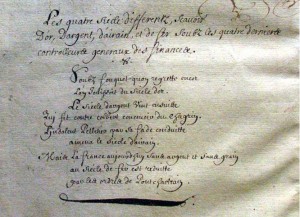 Les quatre Siecle differents, Scavoir
Dor, Dargent, dairain, et de fer Soubz les quatre derniers
controlleurs generaux des finances
Soubz fouquet quon regrette encor
Lon jouissoit du Siecle dor
Le Siecle dargent vint ensuitte
Qui fit
Pelletier par Sa fade conduitte
amena le Siecle dairain
Maits la france aujourdhuy Sans argent et Sans grain
au Siecle de fer est reduitte
par les ordres de Pontchartrain